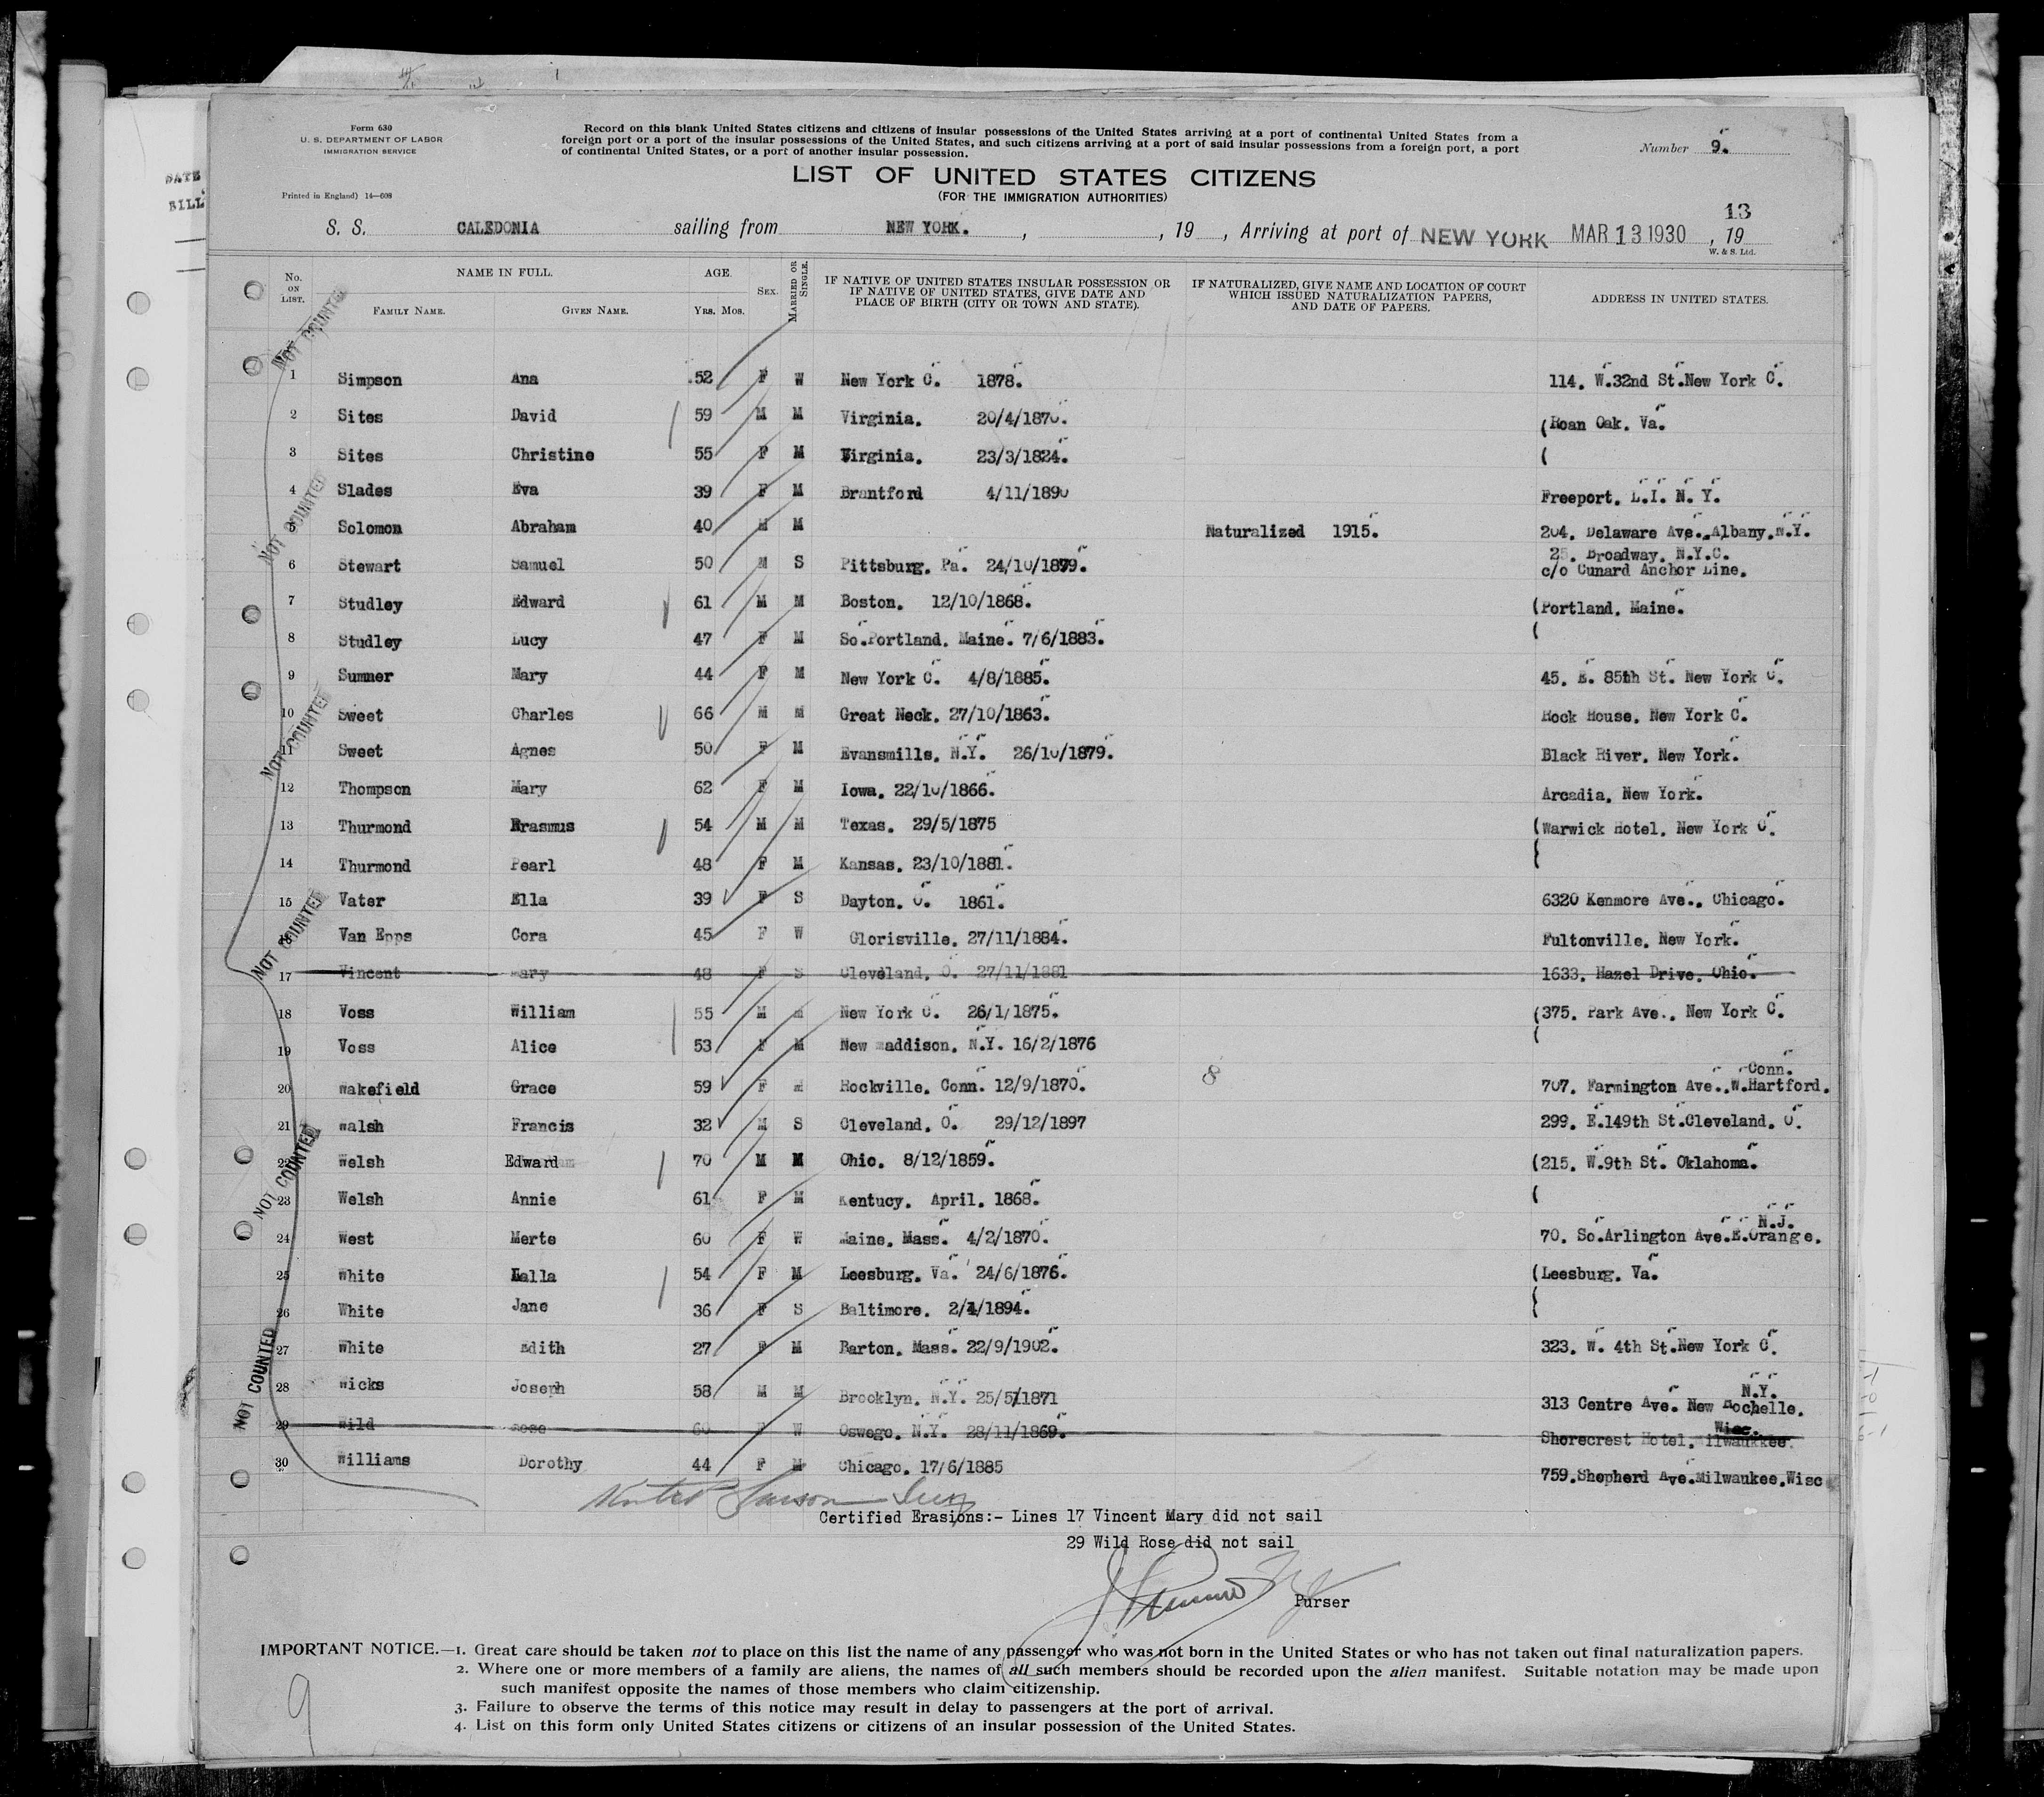 Form 630
U. S. DEPARTMENT OF LABOR
IMMIGRATION SERVICE
Printed in England) 14—608
DATE
BILL
Record on this blank United States citizens and citizens of insular possessions of the United States arriving at a port of continental United States from a
foreign port or a port of the insular possessions of the United States, and such citizens arriving at a port of said insular possessions from a foreign port, a port
of continental United States, or a port of another insular possession.
Number 9.
LIST OF UNITED STATES CITIZENS
(FOR THE IMMIGRATION AUTHORITIES)
13
S. S. CALEDONIA sailing from NEW YORK. , , 19 , Arriving at port of NEW YORK MAR 13 1930 , 19
W. & S. Ltd.
No. ON LIST. NAME IN FULL. FAMILY NAME. GIVEN NAME. AGE. YRS. MOS. SEX. MARRIED OR SINGLE. IF NATIVE OF UNITED STATES INSULAR POSSESSION OR IF NATIVE OF UNITED STATES, GIVE DATE AND PLACE OF BIRTH (CITY OR TOWN AND STATE). IF NATURALIZED, GIVE NAME AND LOCATION OF COURT WHICH ISSUED NATURALIZATION PAPERS, AND DATE OF PAPERS. ADDRESS IN UNITED STATES.
NOT COUNTED
1 Simpson Ana .52 F W New York C. 1878. 114. W.32nd St.New York C.
2 Sites David 59 M M Virginia. 20/4/1870. (Roan Oak. Va.
3 Sites Christine 55 F M Virginia. 23/3/1824. (
NOT COUNTED
4 Slades Eva 39 F M Brantford 4/11/1890 Freeport. L.I. N. Y.
5 Solomon Abraham 40 M M Naturalized 1915. 204. Delaware Ave.,Albany.N.Y.
6 Stewart Samuel 50 M S Pittsburg. Pa. 24/10/1879. 25. Broadway. N.Y.C.
c/o Cunard Anchor Line.
7 Studley Edward 61 M M Boston. 12/10/1868. (Portland. Maine.
8 Studley Lucy 47 F M So.Portland. Maine. 7/6/1883. (
9 Sumner Mary 44 F M New York C. 4/8/1885. 45. E. 85th St. New York C.
NOT COUNTED
10 Sweet Charles 66 M M Great Neck. 27/10/1863. Rock House. New York C.
11 Sweet Agnes 50 F M Evansmills. N.Y. 26/10/1879. Black River. New York.
12 Thompson Mary 62 F M Iowa. 22/10/1866. Arcadia. New York.
13 Thurmond Erasmus 54 M M Texas. 29/5/1875 (Warwick Hotel. New York C.
14 Thurmond Pearl 48 F M Kansas. 23/10/1881. (
15 Vater Ella 39 F S Dayton. O. 1861. 6320 Kenmore Ave., Chicago.
NOT COUNTED
16 Van Epps Cora 45 F W Glorisville. 27/11/1884. Fultonville. New York.
17 Vincent Mary 48 F S Cleveland. O. 27/11/1881 1633. Hazel Drive. Ohio.
18 Voss William 55 M M New York C. 26/1/1875. (375. Park Ave., New York C.
19 Voss Alice 53 F M New maddison. N.Y. 16/2/1876 (
Conn.
20 Wakefield Grace 59 F M Rockville. Conn. 12/9/1870. 8 707. Farmington Ave.,W.Hartford.
21 Walsh Francis 32 M S Cleveland. O. 29/12/1897 299. E.149th St.Cleveland. O.
NOT COUNTED
22 Welsh Edward 70 M M Ohio. 8/12/1859. (215. W.9th St. Oklahoma.
23 Welsh Annie 61 F M Kentucy. April. 1868. (
N.J.
24 West Merte 60 F W Maine. Mass. 4/2/1870. 70. So.Arlington Ave.E.Orange.
25 White Lalla 54 F M Leesburg. Va. 24/6/1876. (Leesburg. Va.
26 White Jane 36 F S Baltimore. 2/4/1894. (
NOT COUNTED
27 White Edith 27 F M Barton. Mass. 22/9/1902. 323. W. 4th St.New York C.
N.Y.
28 Wicks Joseph 58 M M Brooklyn. N.Y. 25/5/1871 313 Centre Ave. New Rochelle.
Wisc.
29 Wild Rose 60 F W Oswego. N.Y. 28/11/1869. Shorecrest Hotel. Milwaukee.
30 Williams Dorothy 44 F M Chicago. 17/6/1885 759.Shepherd Ave.Milwaukee.Wisc
Certified Erasions:- Lines 17 Vincent Mary did not sail
29 Wild Rose did not sail
Purser
IMPORTANT NOTICE.—1. Great care should be taken not to place on this list the name of any passenger who was not born in the United States or who has not taken out final naturalization papers.
2. Where one or more members of a family are aliens, the names of all such members should be recorded upon the alien manifest. Suitable notation may be made upon
such manifest opposite the names of those members who claim citizenship.
3. Failure to observe the terms of this notice may result in delay to passengers at the port of arrival.
4. List on this form only United States citizens or citizens of an insular possession of the United States.
9